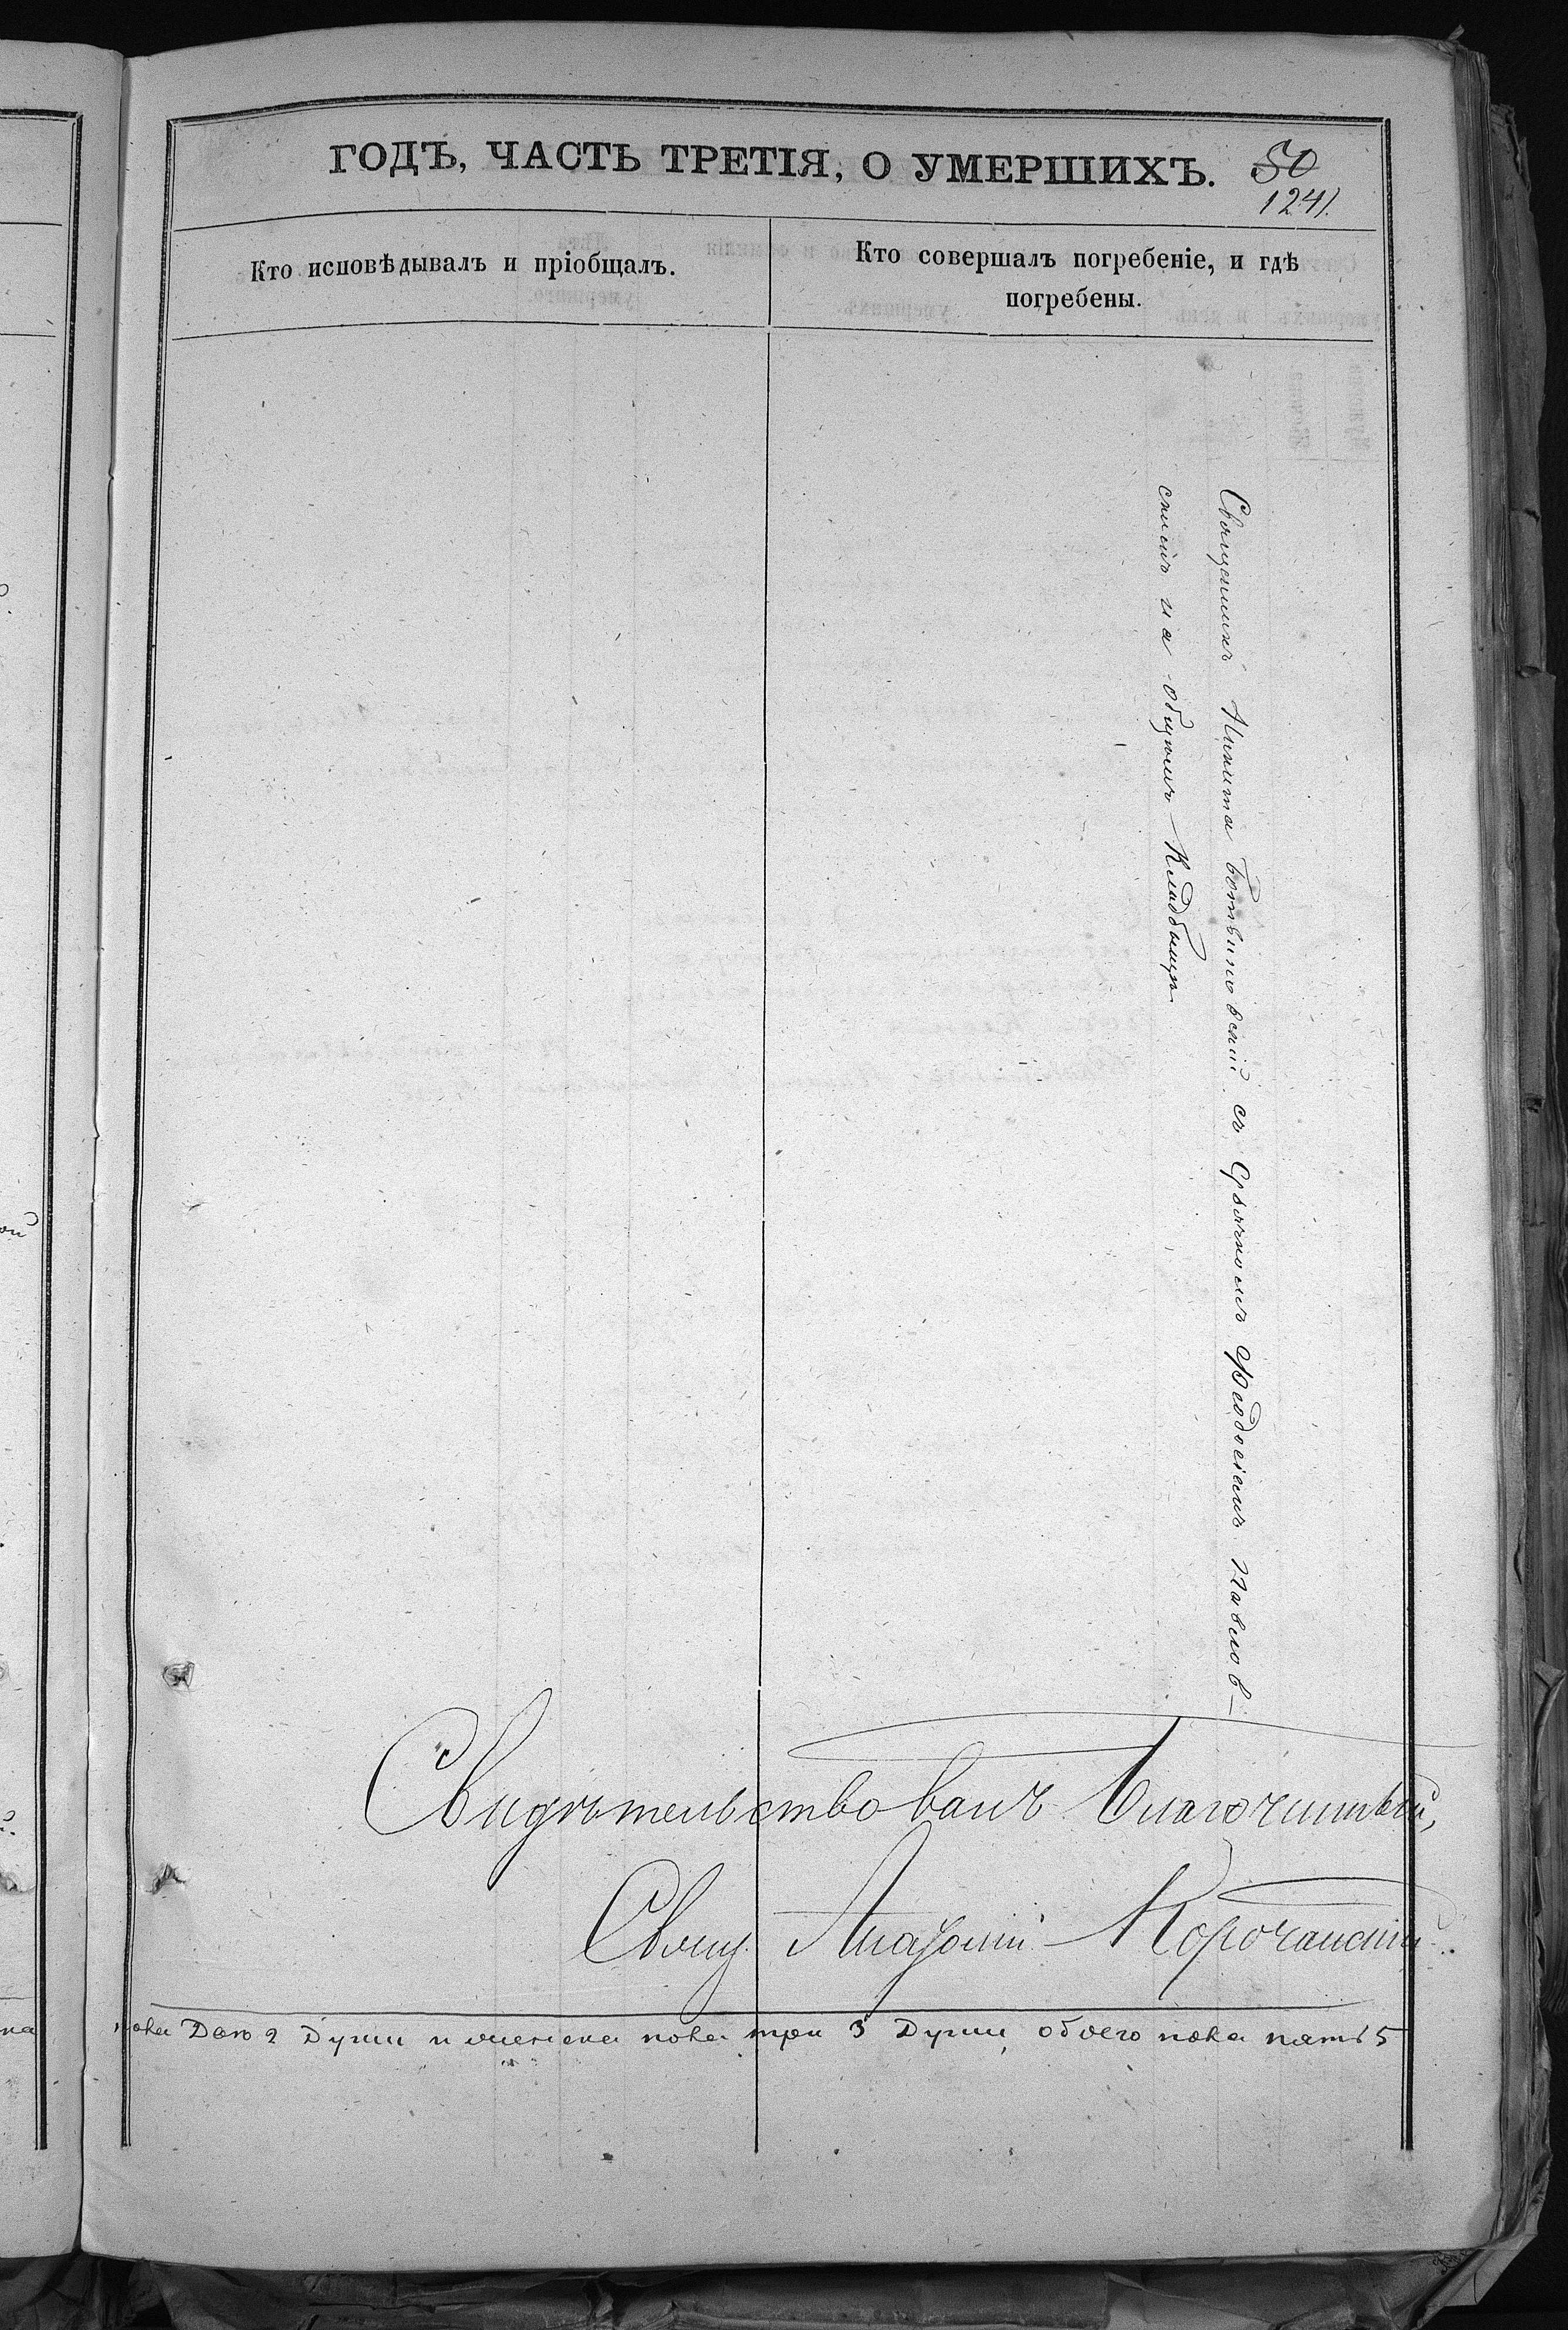 ГОДЪ, ЧАСТЬ ТРЕТІЯ, О УМЕРШИХЪ.
50
1241.
Кто исповѣдывалъ и пріобщалъ.
Кто совершалъ погребеніе, и гдѣ
погребены.
Священникъ Никита Ботвиновскій съ Феодосіемъ Павлов-
скимъ на общемъ Кладбищѣ
Свидѣтельствовалъ Благочинный,
Свящ. Корочанскій.
пола Двѣ 2 Души и женска пола три 3 Души, обоего пола пять 5